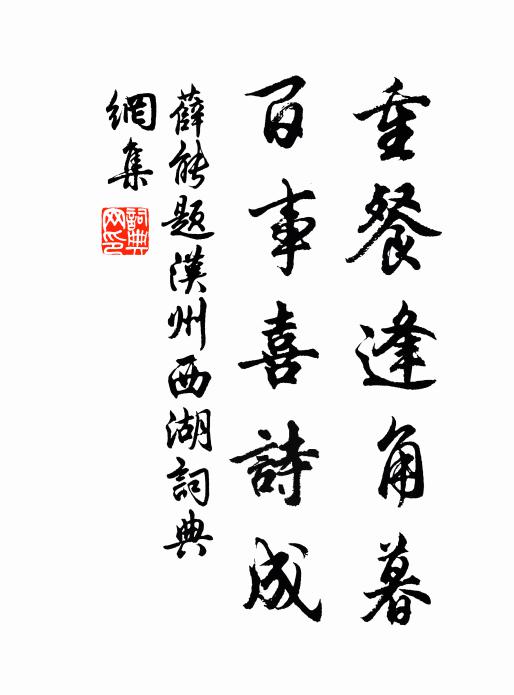 重餐逢角暮
百事喜詩成
薛能題漢州西湖詞典
網集
詞典
網印